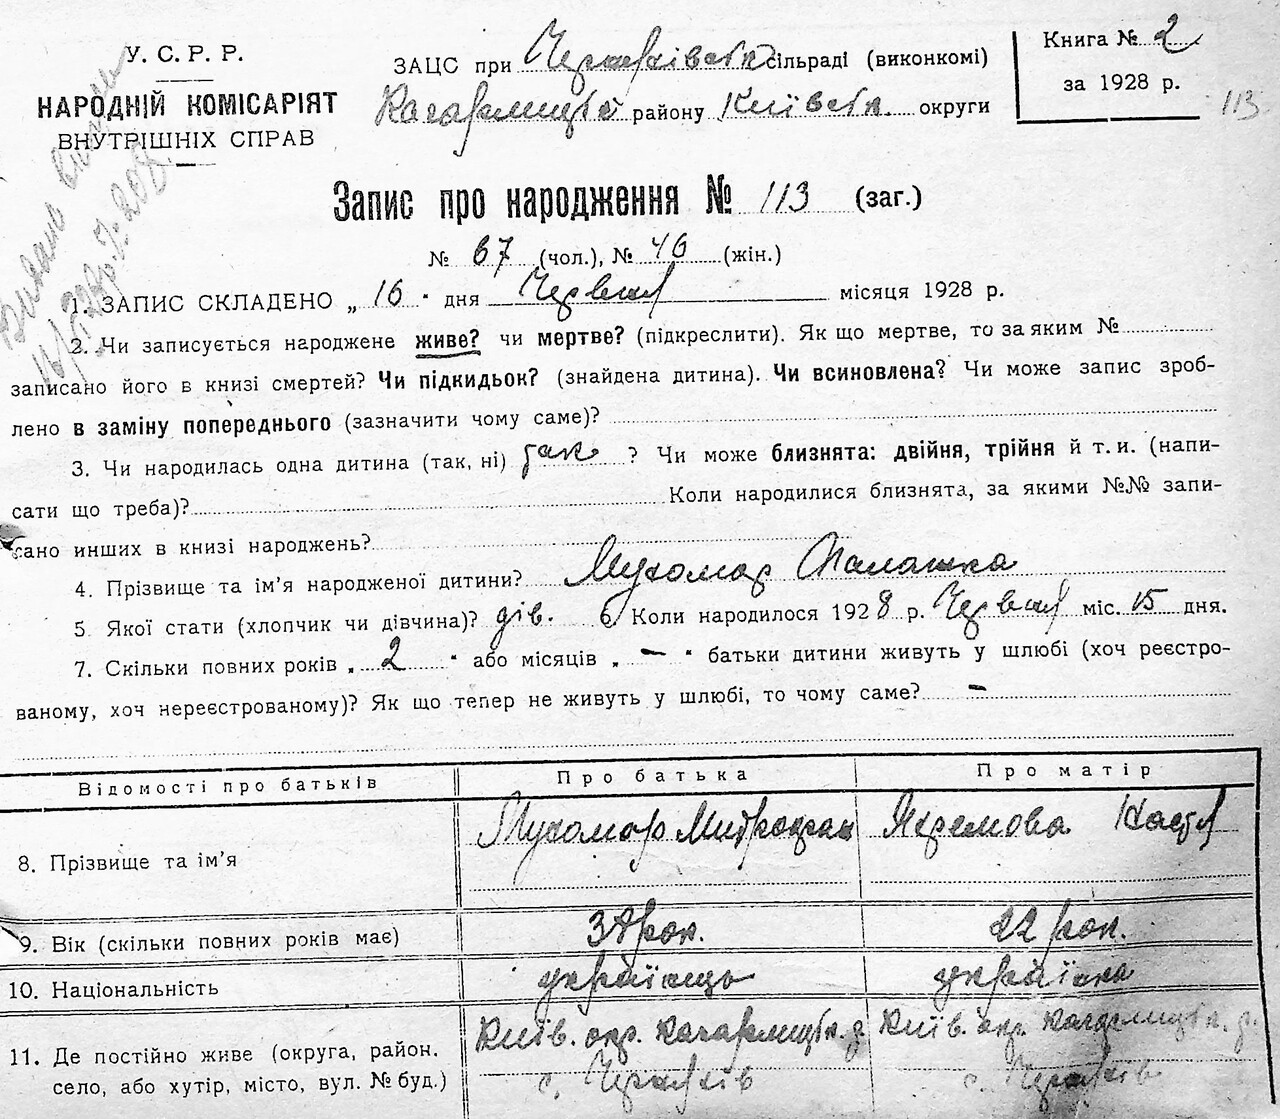 У. С. Р. Р.
НАРОДНІЙ КОМІСАРІЯТ
ВНУТРІШНІХ СПРАВ
ЗАЦС при Черняхівськ. сільраді (виконкомі)
Кагарлицькі району Київськ. округи
Книга № 2
за 1928 р.
113
Запис про народження № 113 (заг.)
№ 67 (чол.), № 46 (жін.)
1. ЗАПИС СКЛАДЕНО „ 16 " дня Червня місяця 1928 р.
2. Чи записується народжене живе? чи мертве? (підкреслити). Як що мертве, то за яким №
записано його в книзі смертей? Чи підкидьок? (знайдена дитина). Чи всиновлена? Чи може запис зроб-
лено в заміну попереднього (зазначити чому саме)?
3. Чи народилась одна дитина (так, ні) так ? Чи може близнята: двійня, трійня й т. и. (напи-
сати що треба)? Коли народилися близнята, за якими №№ запи-
сано инших в книзі народжень?
4. Прізвище та ім'я народженої дитини? Мухомор Палашка
5 Якої стати (хлопчик чи дівчина)? дів. 6 Коли народилося 1928 р. Червня міс. 15 дня.
7. Скільки повних років „ 2 " або місяців „ — " батьки дитини живуть у шлюбі (хоч реєстро-
ваному, хоч нереєстрованому)? Як що тепер не живуть у шлюбі, то чому саме? —
Відомості про батьків Про батька Про матір
8. Прізвище та ім'я Мухомор Митрофан Яхремова Настя
9. Вік (скільки повних років має) рок. 22 рок.
10. Національність українець українка
11. Де постійно живе (округа, район, село, або хутір, місто, вул. № буд.) Київ. окр. Кагарлицьк. р. с. Черняхів Київ. окр. Кагарлицьк. р. с. Черняхів